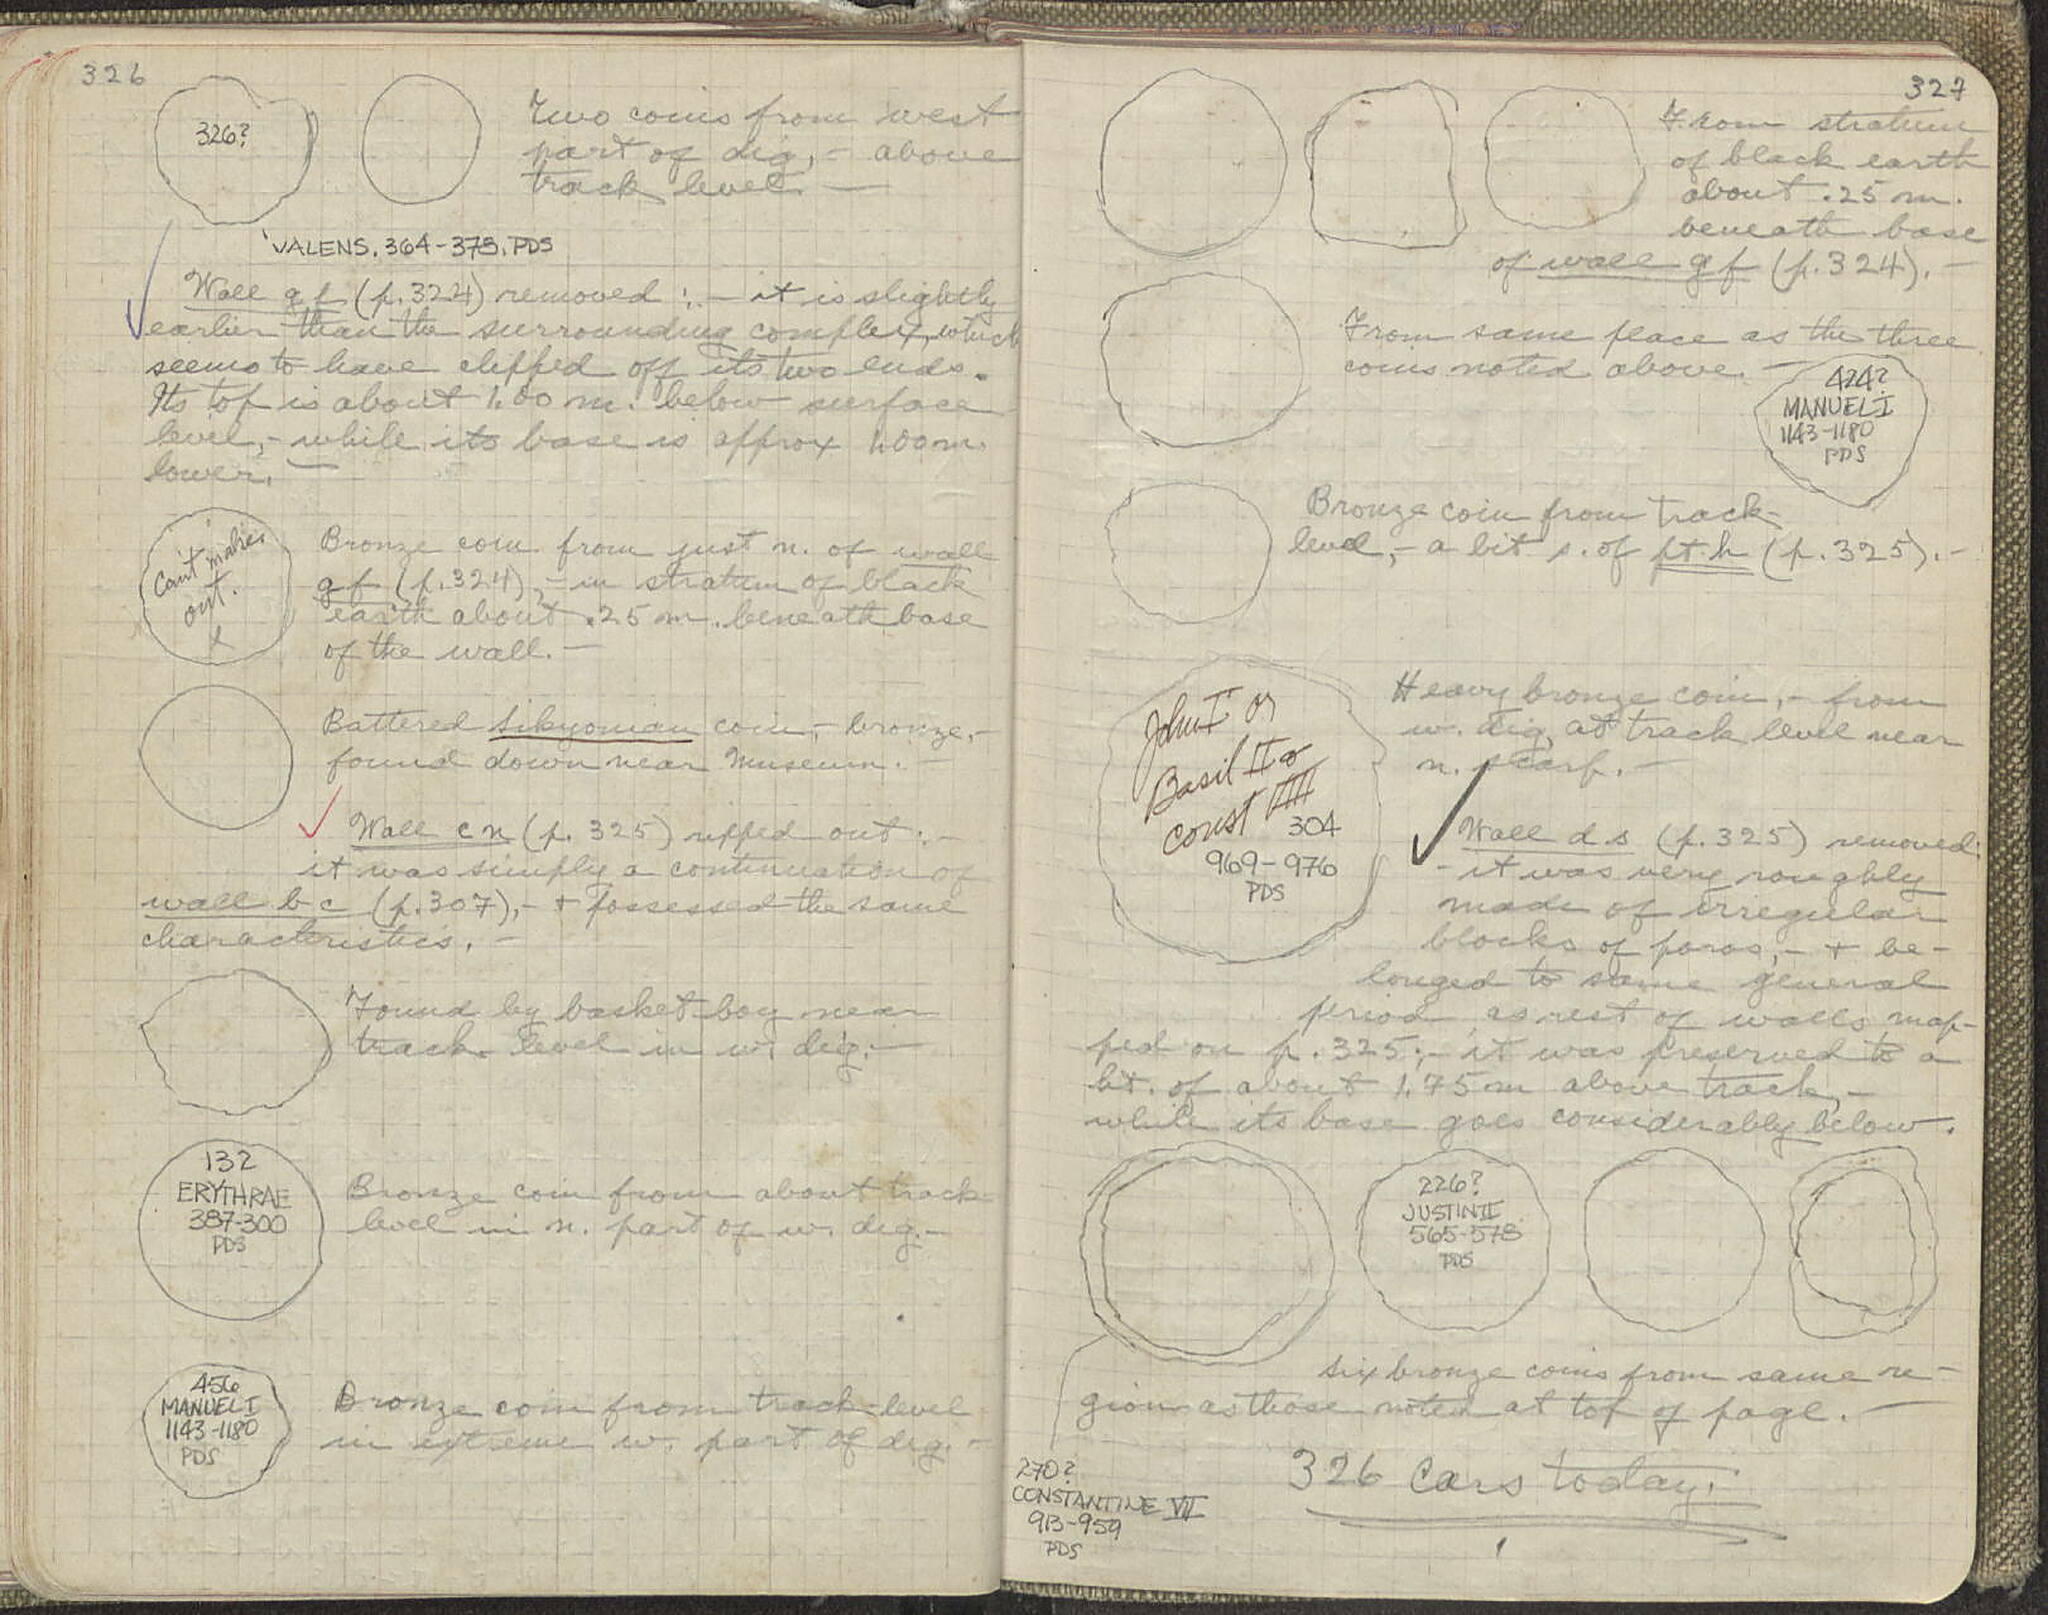 326
326?
Two coins from west
part of dig, - above
track level. —
VALENS. 364-378. PDS
Wall g f (p.324) removed :- it is slightly
earlier than the surrounding complex, which
seems to have clipped off its two ends.
Its top is about 1.00 m. below surface
level, - while its base is approx 1.00 m.
lower. —
Can't make
out.
Bronze coin from just n. of wall
g f (p.324), - in stratum of black
earth about .25 m. beneath base
of the wall. —
Battered Sikyonian coin, - bronze, -
found down near Museum. —
Wall c n (p. 325) ripped out :-
it was simply a continuation of
wall b c (p.307), - + possessed the same
characteristics. —
Found by basket-boy near
track level in w. dig. —
132
ERYTHRAE
387-300
PDS
Bronze coin from about track
level in n. part of w. dig. —
456
MANUEL I
1143-1180
PDS
Bronze coin from track-level
in extreme w. part of dig. —
327
From stratum
of black earth
about .25 m.
beneath base
of wall g f (p.324). —
From same place as the three
coins noted above. —
424?
MANUEL I
1143-1180
PDS
Bronze coin from track-
level, - a bit s. of pt. h (p.325). —
John I or
Basil II or
Const VIII
304
969-976
PDS
Heavy bronze coin, - from
w. dig, at track level near
n. scarp. —
Wall d s (p.325) removed:
- it was very roughly
made of irregular
blocks of poros, - + be-
longed to same general
period as rest of walls map-
ped on p. 325; - it was preserved to a
ht. of about 1.75 m above track, -
while its base goes considerably below.
226?
JUSTIN II
565-578
PDS
six bronze coins from same re-
gion as those noted at top of page. —
270?
CONSTANTINE VII
913-959
PDS
326 Cars today.